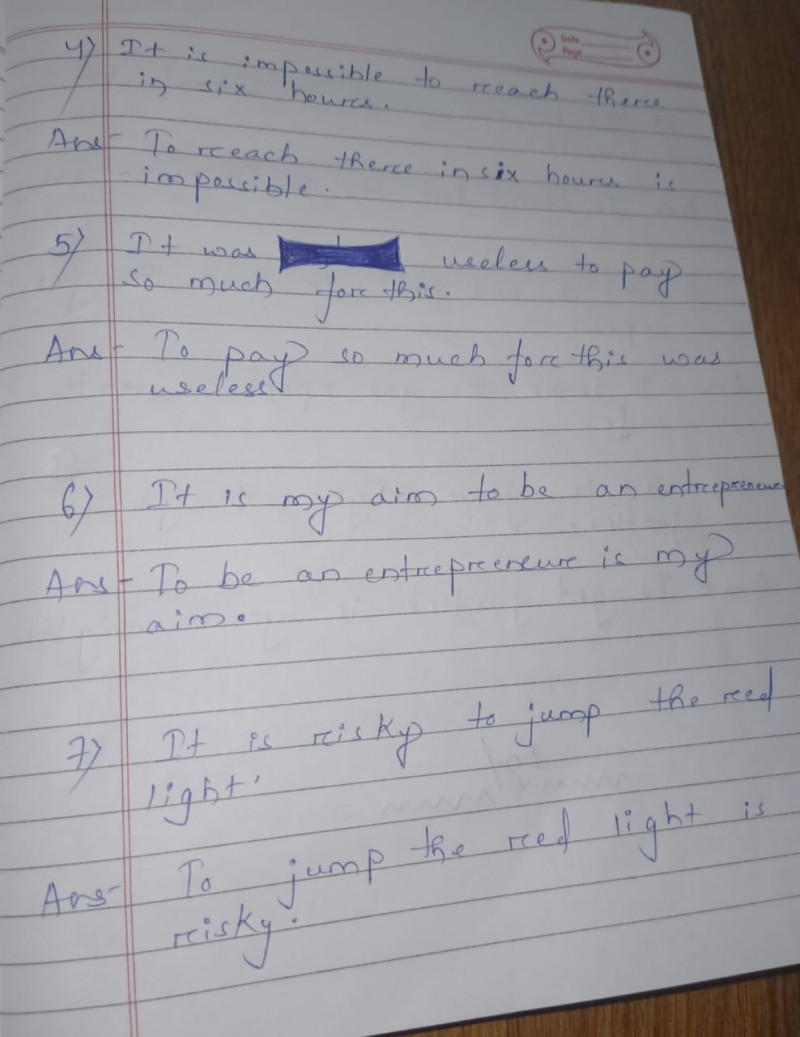 Date
Page
4) It is impossible to reach there
in six hours.
Ans- To reach there in six hours is
impossible.
5) It was useless to pay
so much for this.
Ans- To pay so much for this was
useless
6) It is my aim to be an entrepreneur
Ans- To be an entrepreneur is my
aim.
7) It is risky to jump the red
light.
Ans- To jump the red light is
risky.